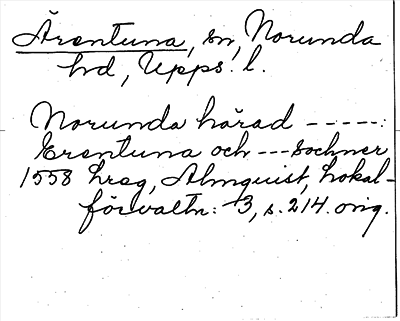 Ärentuna, sn, Norunda
hd, Upps. l.
Norunda härad -----:
Erentuna och --- sochner
1558 hreg, Almquist, Lokal-
förvaltn: 3, s. 214. orig.